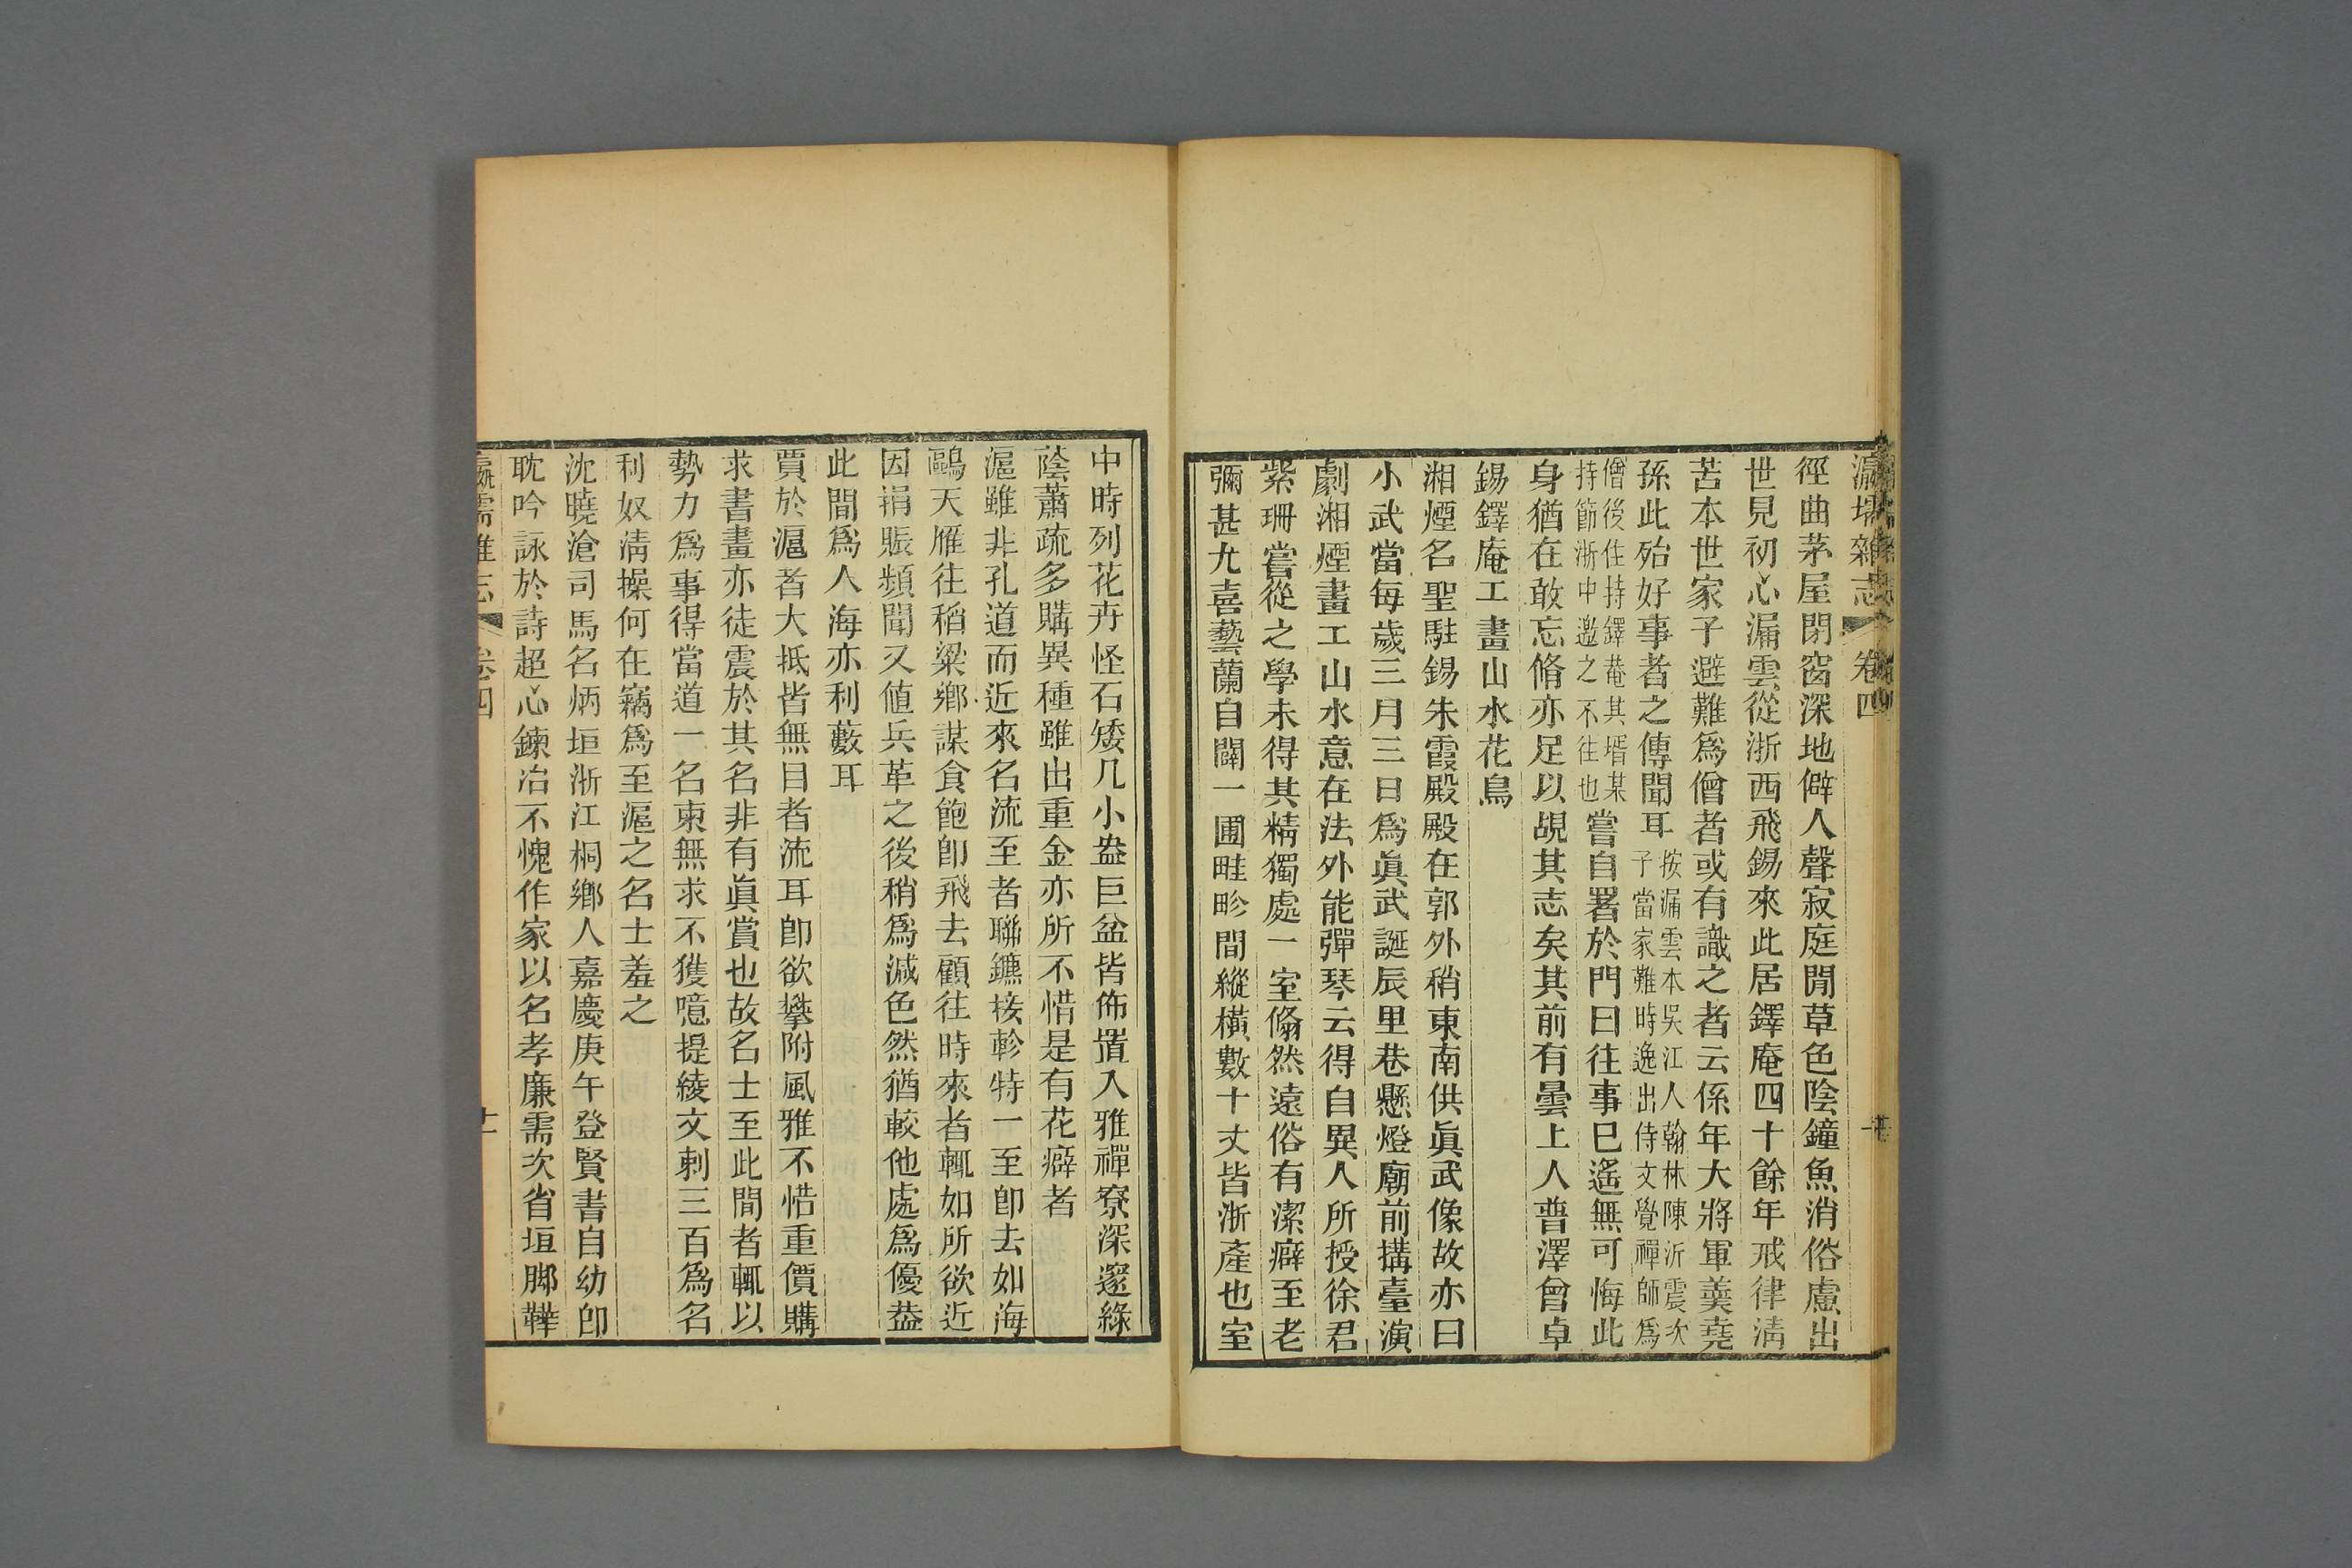 瀛壖雜志 卷四
徑曲茅屋閉窗深地僻人聲寂庭閒草色陰鐘魚消俗慮出
世見初心漏雲從浙西飛錫來此居鐸庵四十餘年戒律清
苦本世家子避難爲僧者或有識之者云係年大將軍羹堯
孫此殆好事者之傳聞耳按漏雲本吳江人翰林陳沂震次
子當家難時逸出侍文覺禪師爲
僧後住持鐸菴其壻某
持節浙中邀之不往也嘗自署於門曰往事已遙無可悔此
身猶在敢忘脩亦足以覘其志矣其前有曇上人普澤曾卓
錫鐸庵工畫山水花鳥
湘煙名聖駐錫朱霞殿殿在郭外稍東南供眞武像故亦曰
小武當每歲三月三日爲眞武誕辰里巷懸燈廟前搆臺演
劇湘煙畫工山水意在法外能彈琴云得自異人所授徐君
紫珊嘗從之學未得其精獨處一室翛然遠俗有潔癖至老
彌甚尤喜藝蘭自闢一圃畦畛間縱橫數十丈皆浙產也室
中時列花卉怪石矮几小盎巨盆皆佈置入雅禪寮深邃綠
蔭蕭疏多購異種雖出重金亦所不惜是有花癖者
滬雖非孔道而近來名流至者聯鑣接軫特一至卽去如海
鷗天雁往稻粱鄉謀食飽卽飛去顧往時來者輒如所欲近
因捐賑頻聞又値兵革之後稍爲減色然猶較他處爲優葢
此間爲人海亦利藪耳
賈於滬者大抵皆無目者流耳卽欲攀附風雅不惜重價購
求書畫亦徒震於其名非有眞賞也故名士至此間者輒以
勢力爲事得當道一名柬無求不獲噫提綾文刺三百爲名
利奴淸操何在竊爲至滬之名士羞之
沈曉滄司馬名炳垣浙江桐鄉人嘉慶庚午登賢書自幼卽
耽吟詠於詩超心鍊冶不愧作家以名孝廉需次省垣腳鞾
瀛壖雜志 卷四 十一